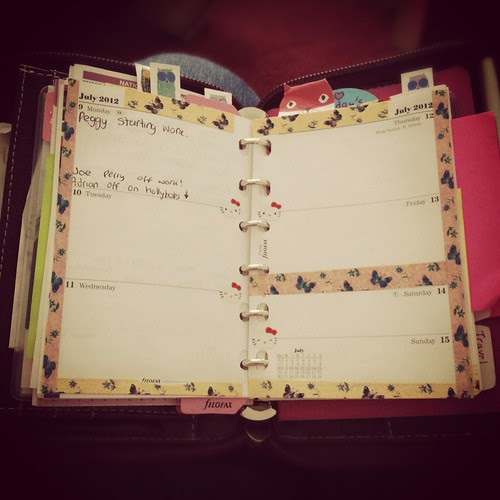 July 2012
9 Monday
Peggy starting work.
Joe Perry off work!
Adrian off on hollybobs ↓
10 Tuesday
11 Wednesday
filofax
July 2012
Thursday 12
filofax
Friday 13
Saturday 14
Sunday 15
July
filofax
Travel